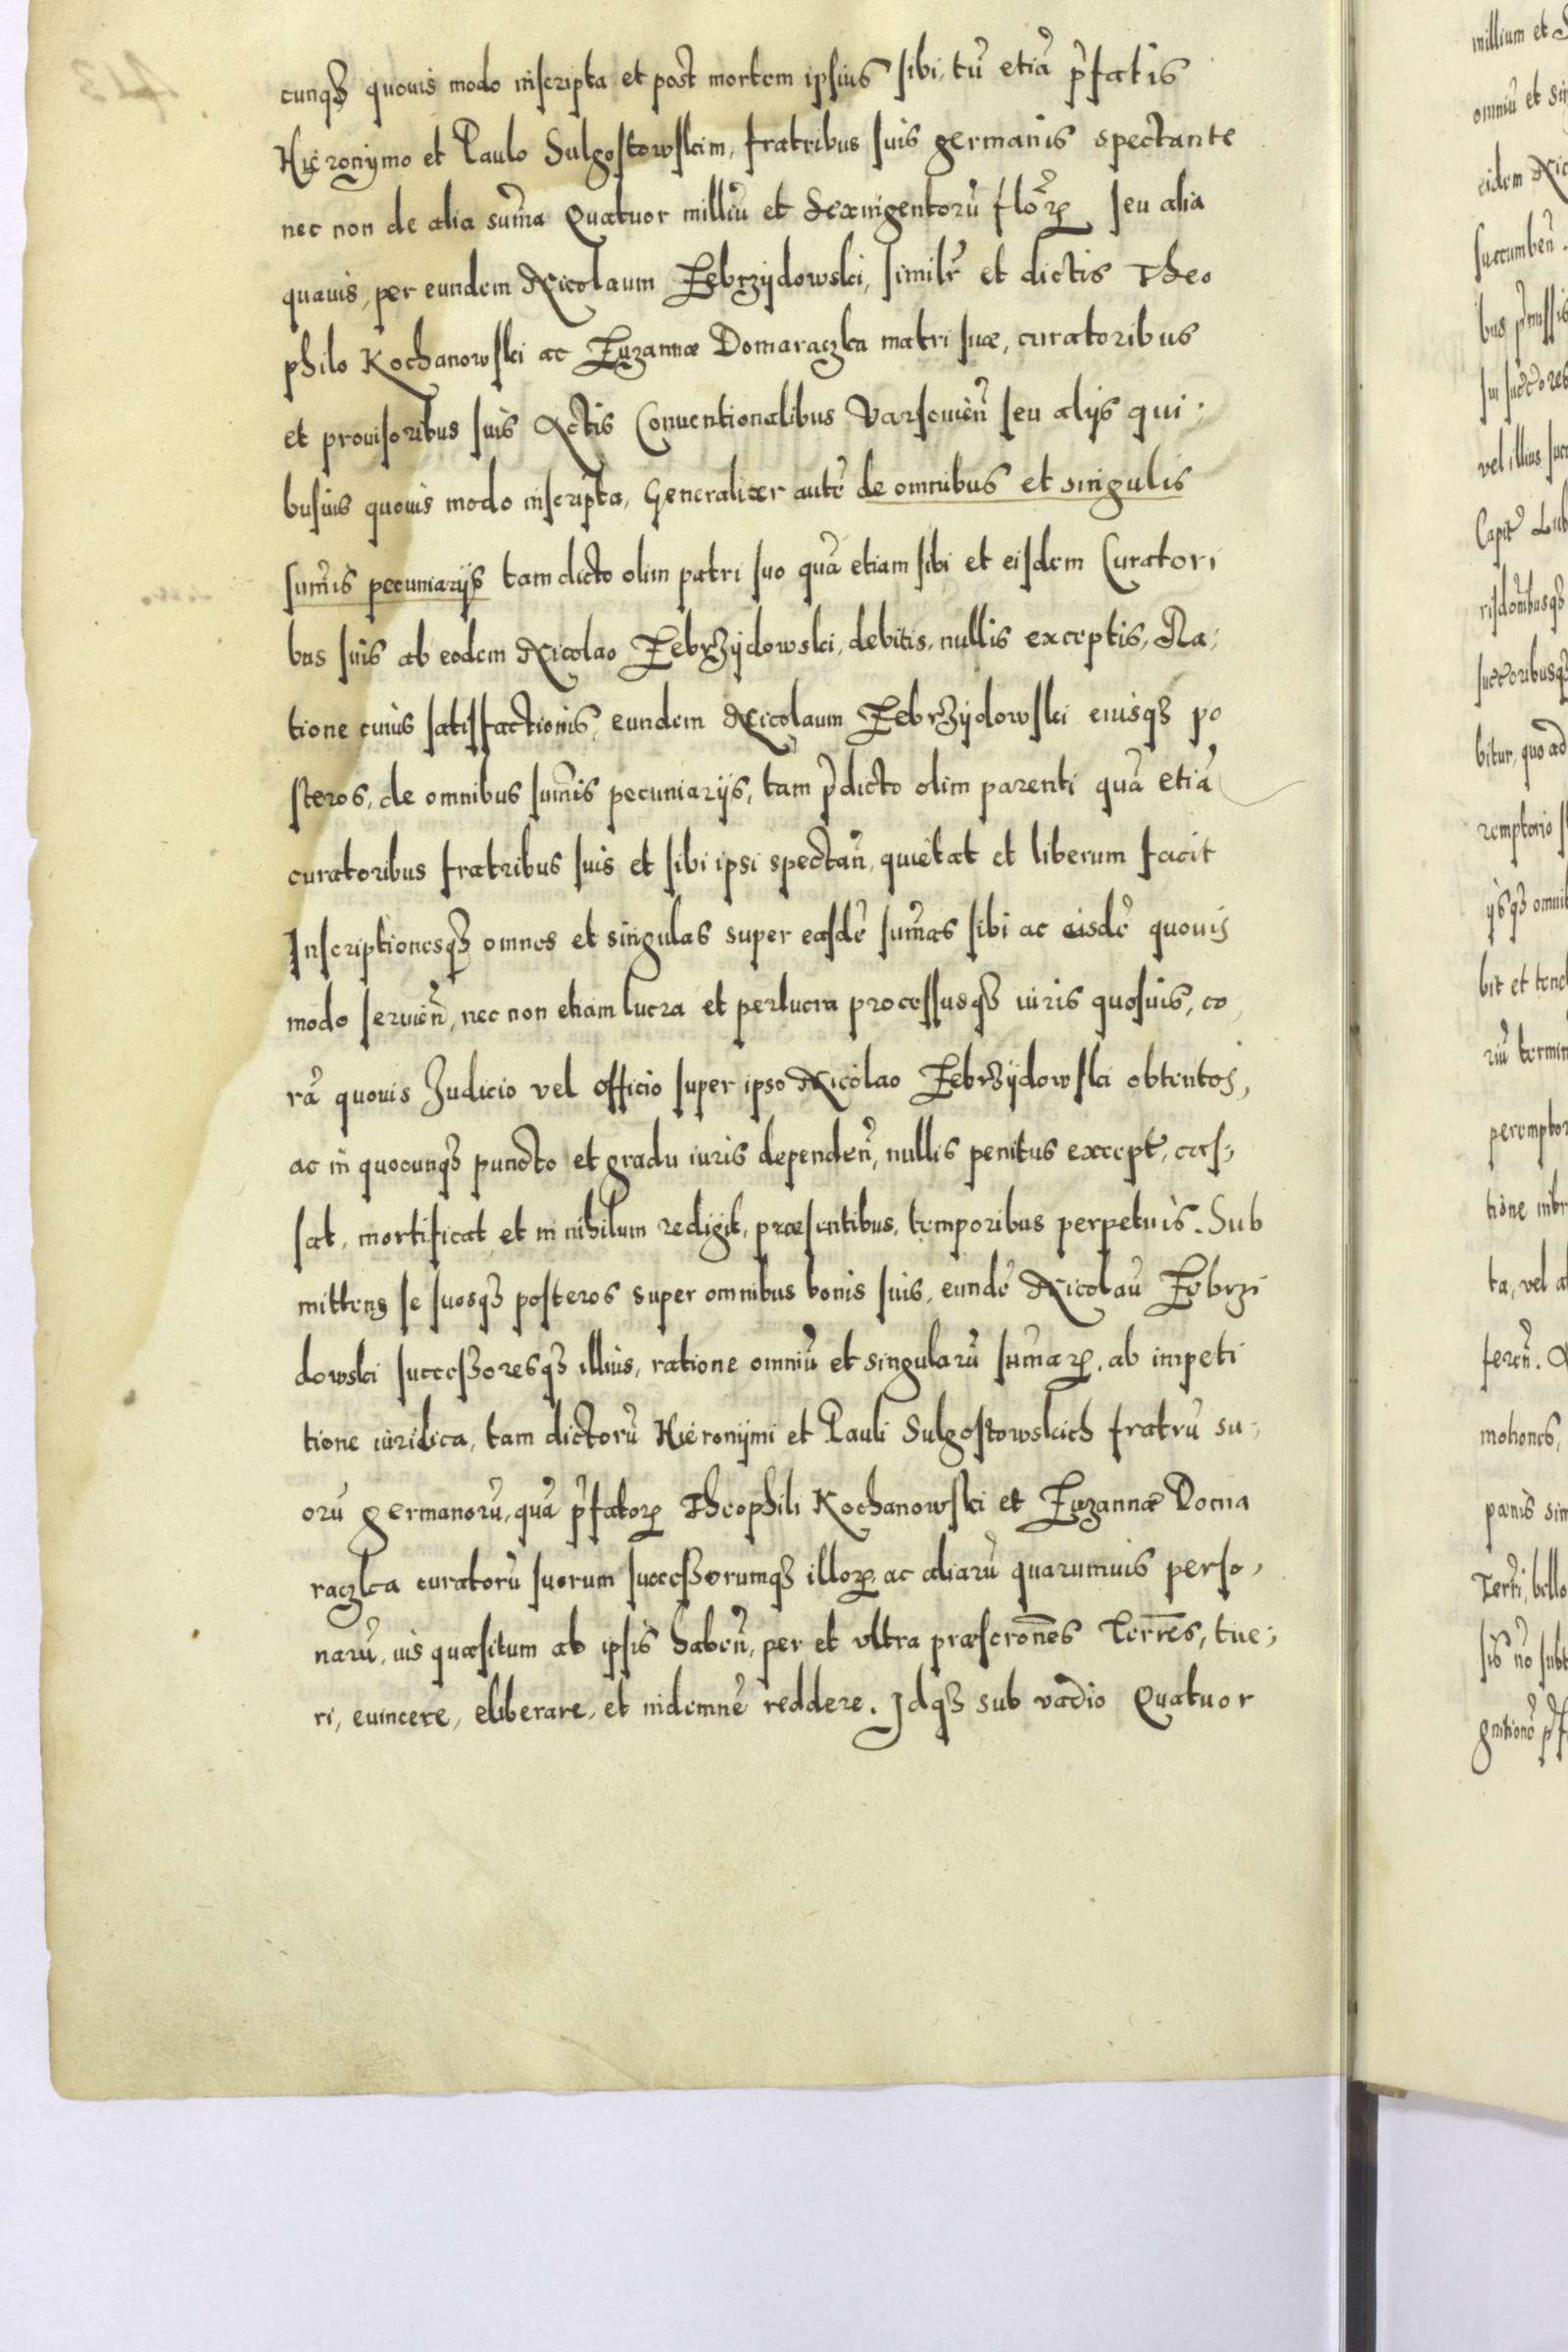 cunqꝫ quouis modo inscripta et post mortem ipsius sibi, tũ etiã p̃fatis
Hieronÿmo et Paulo Sulgostowskim, fratribus suis germanis spectante
nec non de alia sum̃a Quatuor milliũ et Sexingentorũ flõrꝝ seu alia
quauis, per eundem Nicolaum Zebrzÿdowski, similr̃ et dictis Theo
philo Kochanowski ac Zuzannæ Domaraczka matri suæ, curatoribus
et prouisoribus suis Actis Conuentionalibus Varsouieñ seu alÿs qui-
busuis quouis modo inscripta, Generaliter autẽ de omnibus et singulis
sum̃is pecuniarÿs tam dicto olim patri suo quã etiam sibi et eisdem Curatori
bus suis ab eodem Nicolao Zebrzÿdowski, debitis, nullis exceptis, Ra,
tione cuius satisfactionis, eundem Nicolaum Zebrzÿdowski eiusqꝫ po
steros, de omnibus sum̃is pecuniarÿs, tam p̃dicto olim parenti quã etiã
curatoribus fratribus suis et sibi ipsi spectañ, quietat et liberum facit
Inscriptionesqꝫ omnes et singulas super easdẽ sum̃as sibi ac eisdẽ quouis
modo seruieñ, nec non etiam lucra et perlucra processusqꝫ iuris quosuis, co,
rã quouis Judicio vel officio super ipso Nicolao Zebrzÿdowski obtentos,
ac in quocunqꝫ puncto et gradu iuris dependeñ, nullis penitus except̃, cas,
sat, mortificat, et in nihilum redigit, præsentibus, temporibus perpetuis. Sub
mittens se suosqꝫ posteros super omnibus bonis suis, eundẽ Nicolaũ Zebrzi
dowski successoresqꝫ illius, ratione omniũ et singularũ sum̃arꝝ, ab impeti
tione iuridica, tam dictorũ Hieronÿmi et Pauli Sulgostowskich fratrũ su,
orũ germanorũ, quã p̃fatorꝝ Theophili Kochanowski et Zuzannæ Doma
raczka curatorũ suorum successorumqꝫ illorꝝ ac aliarũ quarumuis perso,
narũ, ius quæsitum ab ipsis habeñ, per et vltra præscroñes Terrẽs, tue,
ri, euincere, eliberare, et indemnẽ reddere. Jdqꝫ sub vadio Quatuor